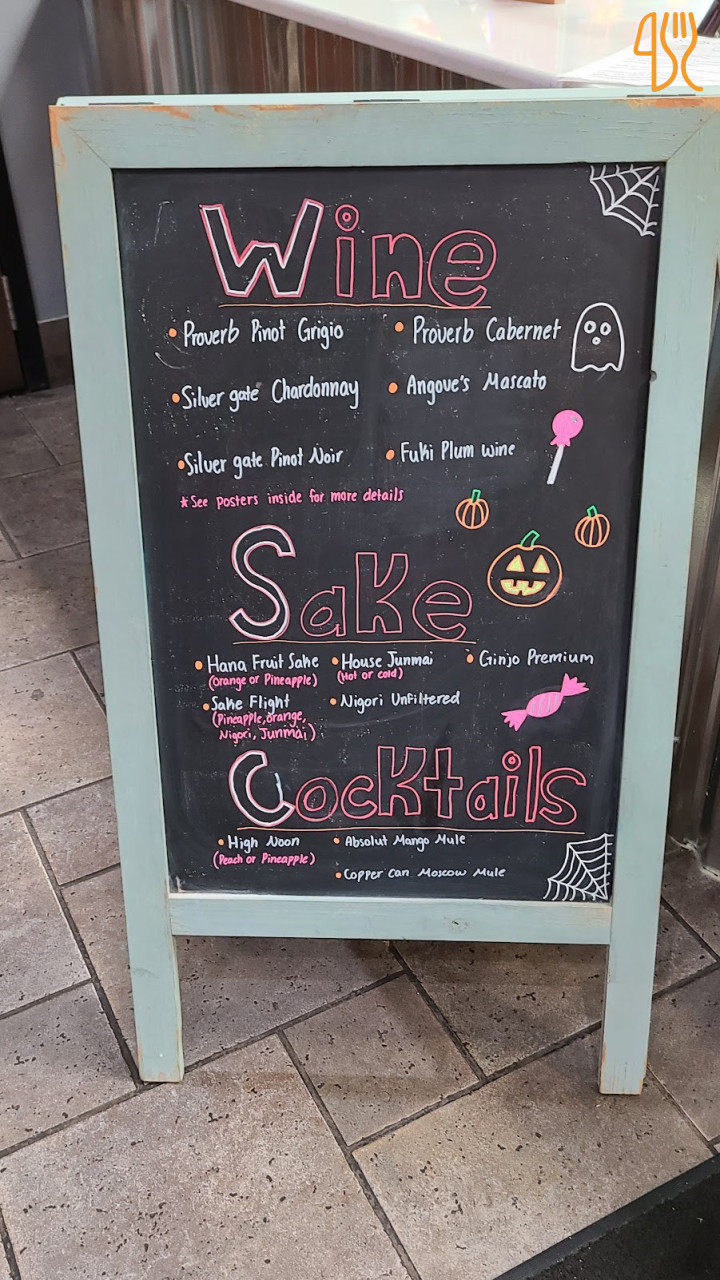 Wine
• Proverb Pinot Grigio • Proverb Cabernet
• Silver gate Chardonnay • Angove's Mascato
• Silver gate Pinot Noir • Fuki Plum wine
*See posters inside for more details
Sake
• Hana Fruit Sake • House Junmai • Ginjo Premium
(Orange or Pineapple) (Hot or cold)
• Sake Flight • Nigori Unfiltered
(Pineapple, orange,
Nigori, Junmai)
Cocktails
• High Noon • Absolut Mango Mule
(Peach or Pineapple)
• Copper Can Moscow Mule